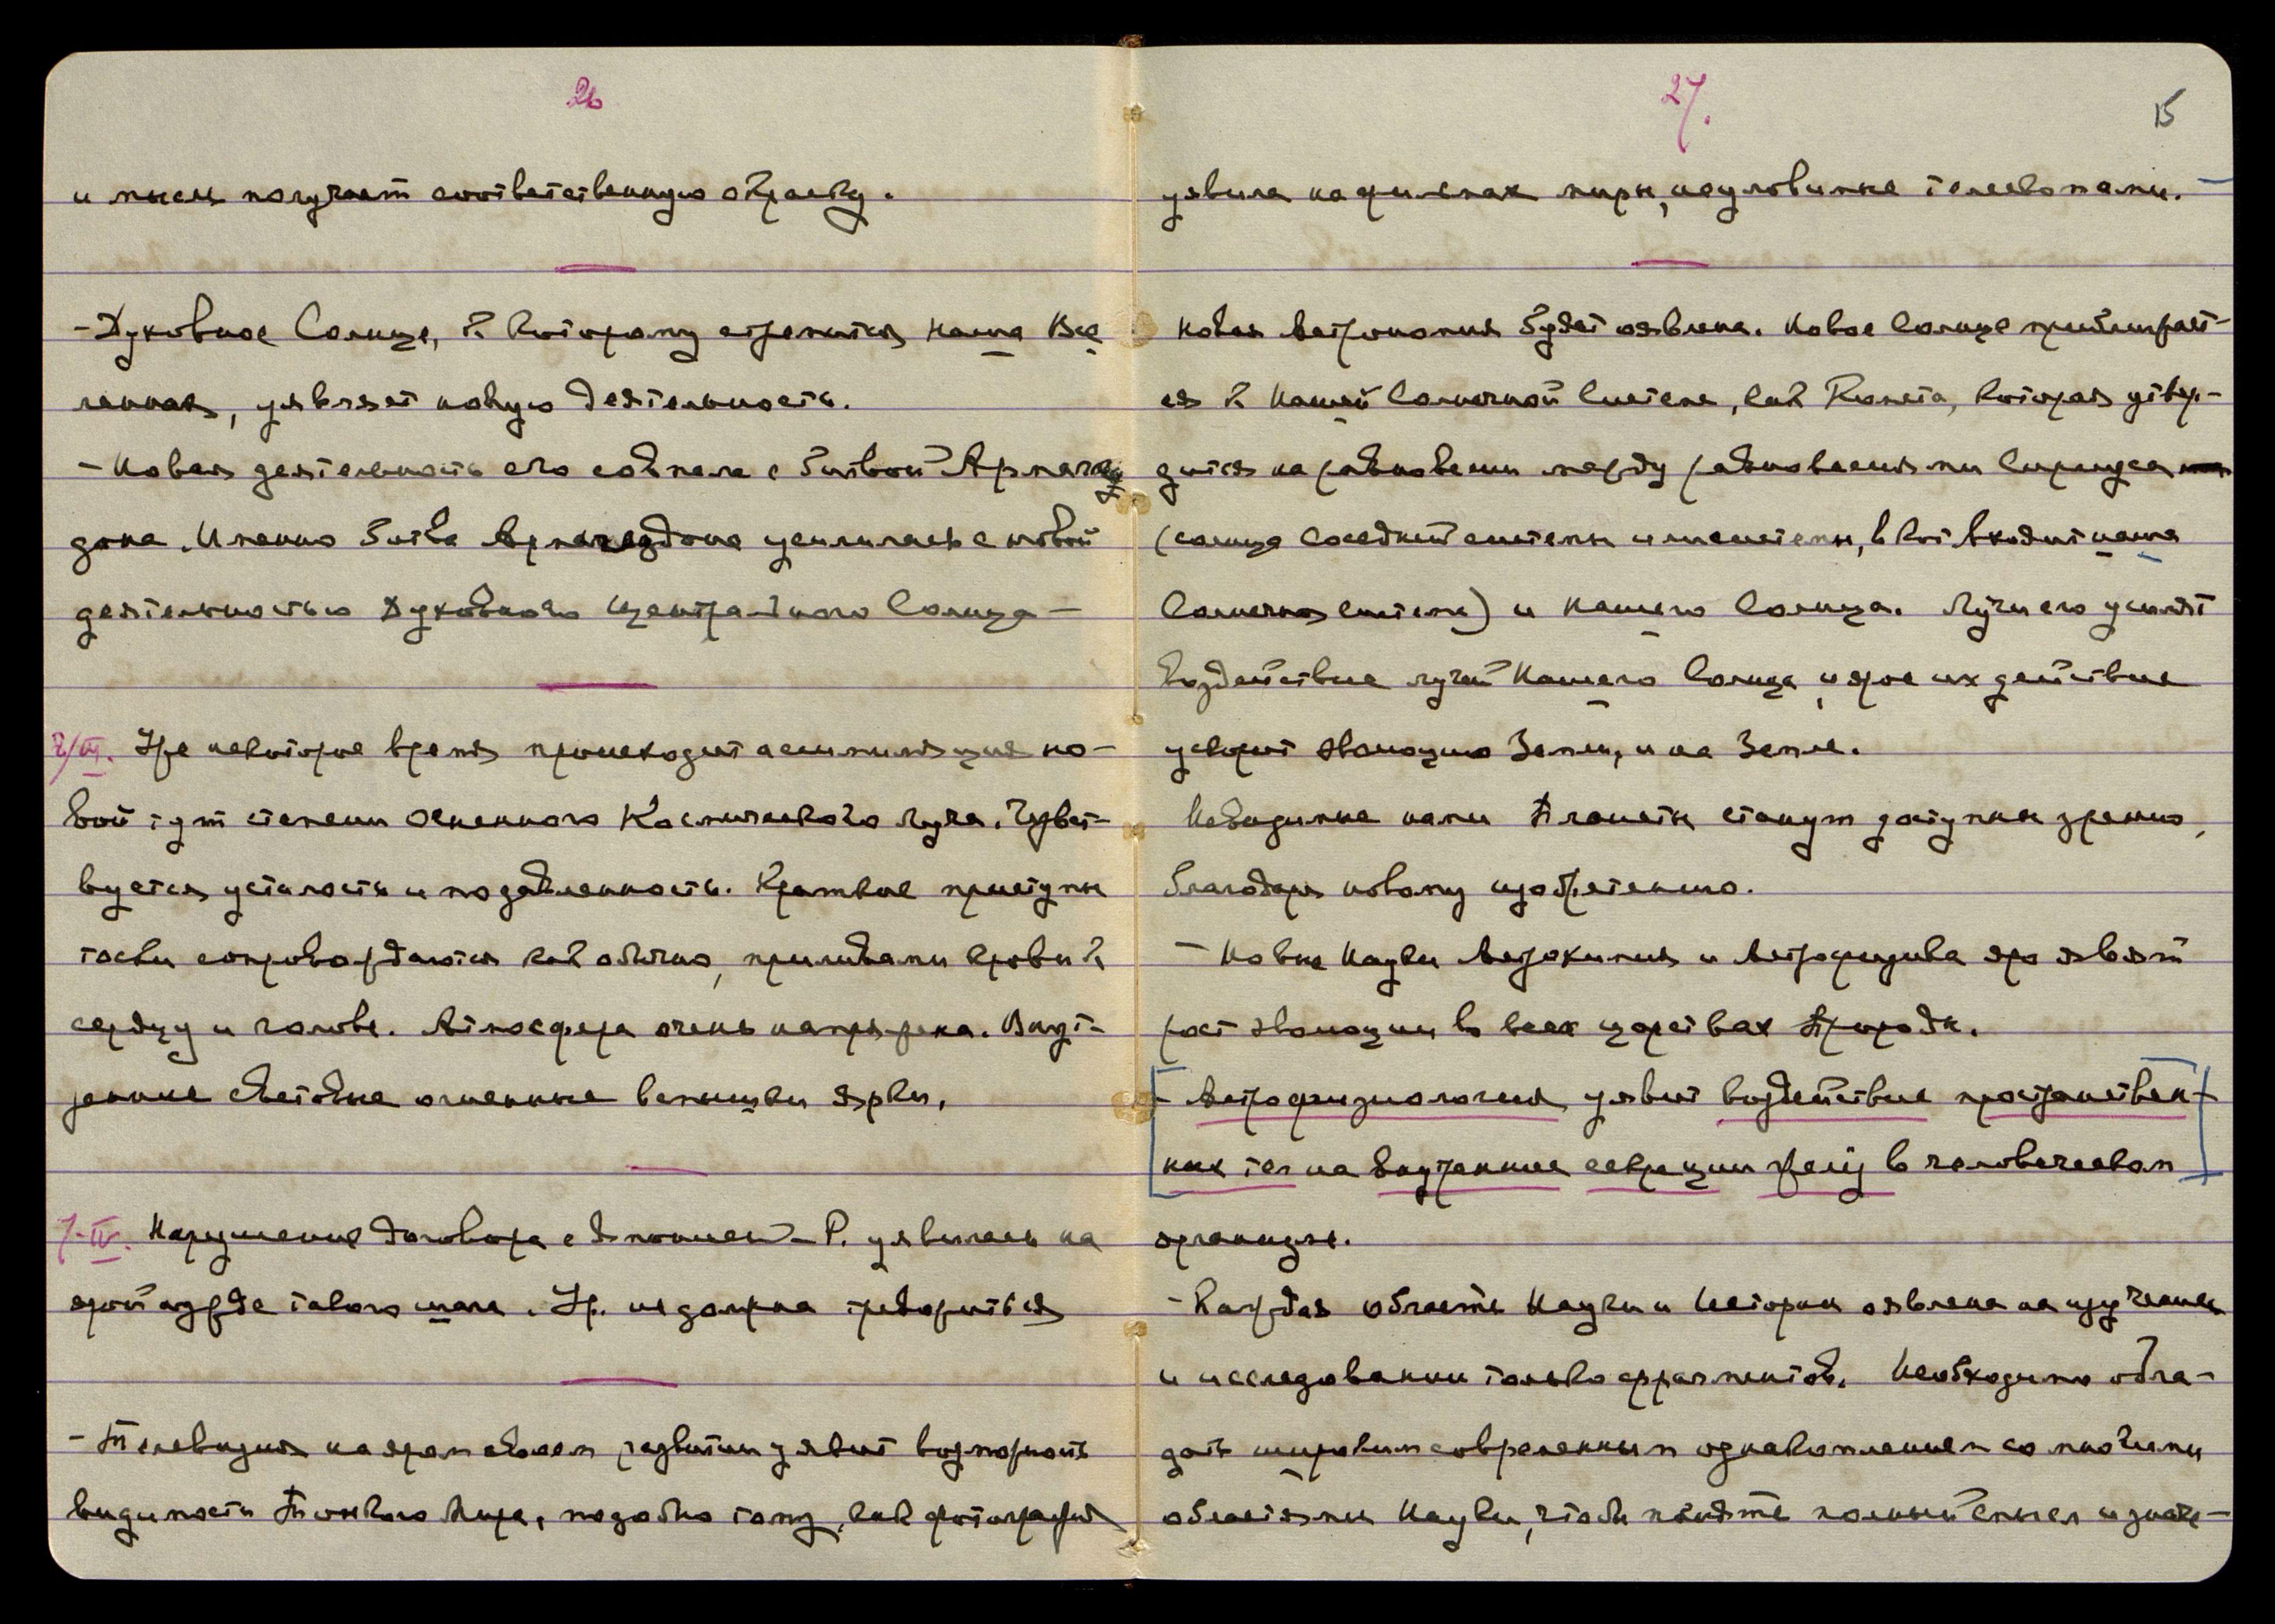 26
и мысль получает соответственную окраску.
- Духовное Солнце, к которому стремится наша Все
ленная, уявляет новую деятельность.
- Новая деятельность его совпала с битвой Армагед
дона. Именно битва Армагеддона усилилась с новой
деятельностью Духовного Центрального Солнца -
7/III. Уже некоторое время происходит ассимиляция но-
вой ступени Огненного Космического Луча. Чувст-
вуется усталость и подавленность. Краткие приступы
тоски сопровождаются как обычно, приливами крови к
сердцу и голове. Атмосфера очень напряжена. Внут-
ренние световые огненные вспышки ярки.
7-IV. Нарушение договора с Японией - Р. уявилась на
ярой нужде такого шага. Ур. не должна тревожиться
- Телевизия на яром своем развитии уявит возможность
видимости Тонкого Мира, подобно тому, как фотография
27.
15
уявила на фильмах миры, неуловимые телескопами. -
Новая Астрономия будет оявлена. Новое Солнце приближает-
ся к Нашей Солнечной Системе, как Комета, которая утвер-
дится на равновесии между равновесиями Сириуса
(солнца соседней системы и системы, в кот. входит наша
Солнечная система) и Нашего Солнца. Лучи его усилят
воздействие лучей Нашего Солнца, и ярое их действие
ускорит эволюцию Земли, и на Земле.
Невидимые нами Планеты станут доступны зрению,
благодаря новому изобретению.
- Новые Науки Астрохимия и Астрофизика яро явят
рост эволюции во всех царствах Природы.
- Астрофизиология уявит воздействие пространствен-
ных тел на внутренние секреции желёз в человеческом
организме.
- Каждая область Науки и Истории оявлена на изучении
и исследовании только фрагментов. Необходимо обла-
дать широким современным ознакомлением со многими
областями Науки, чтобы понять полный смысл и значе-